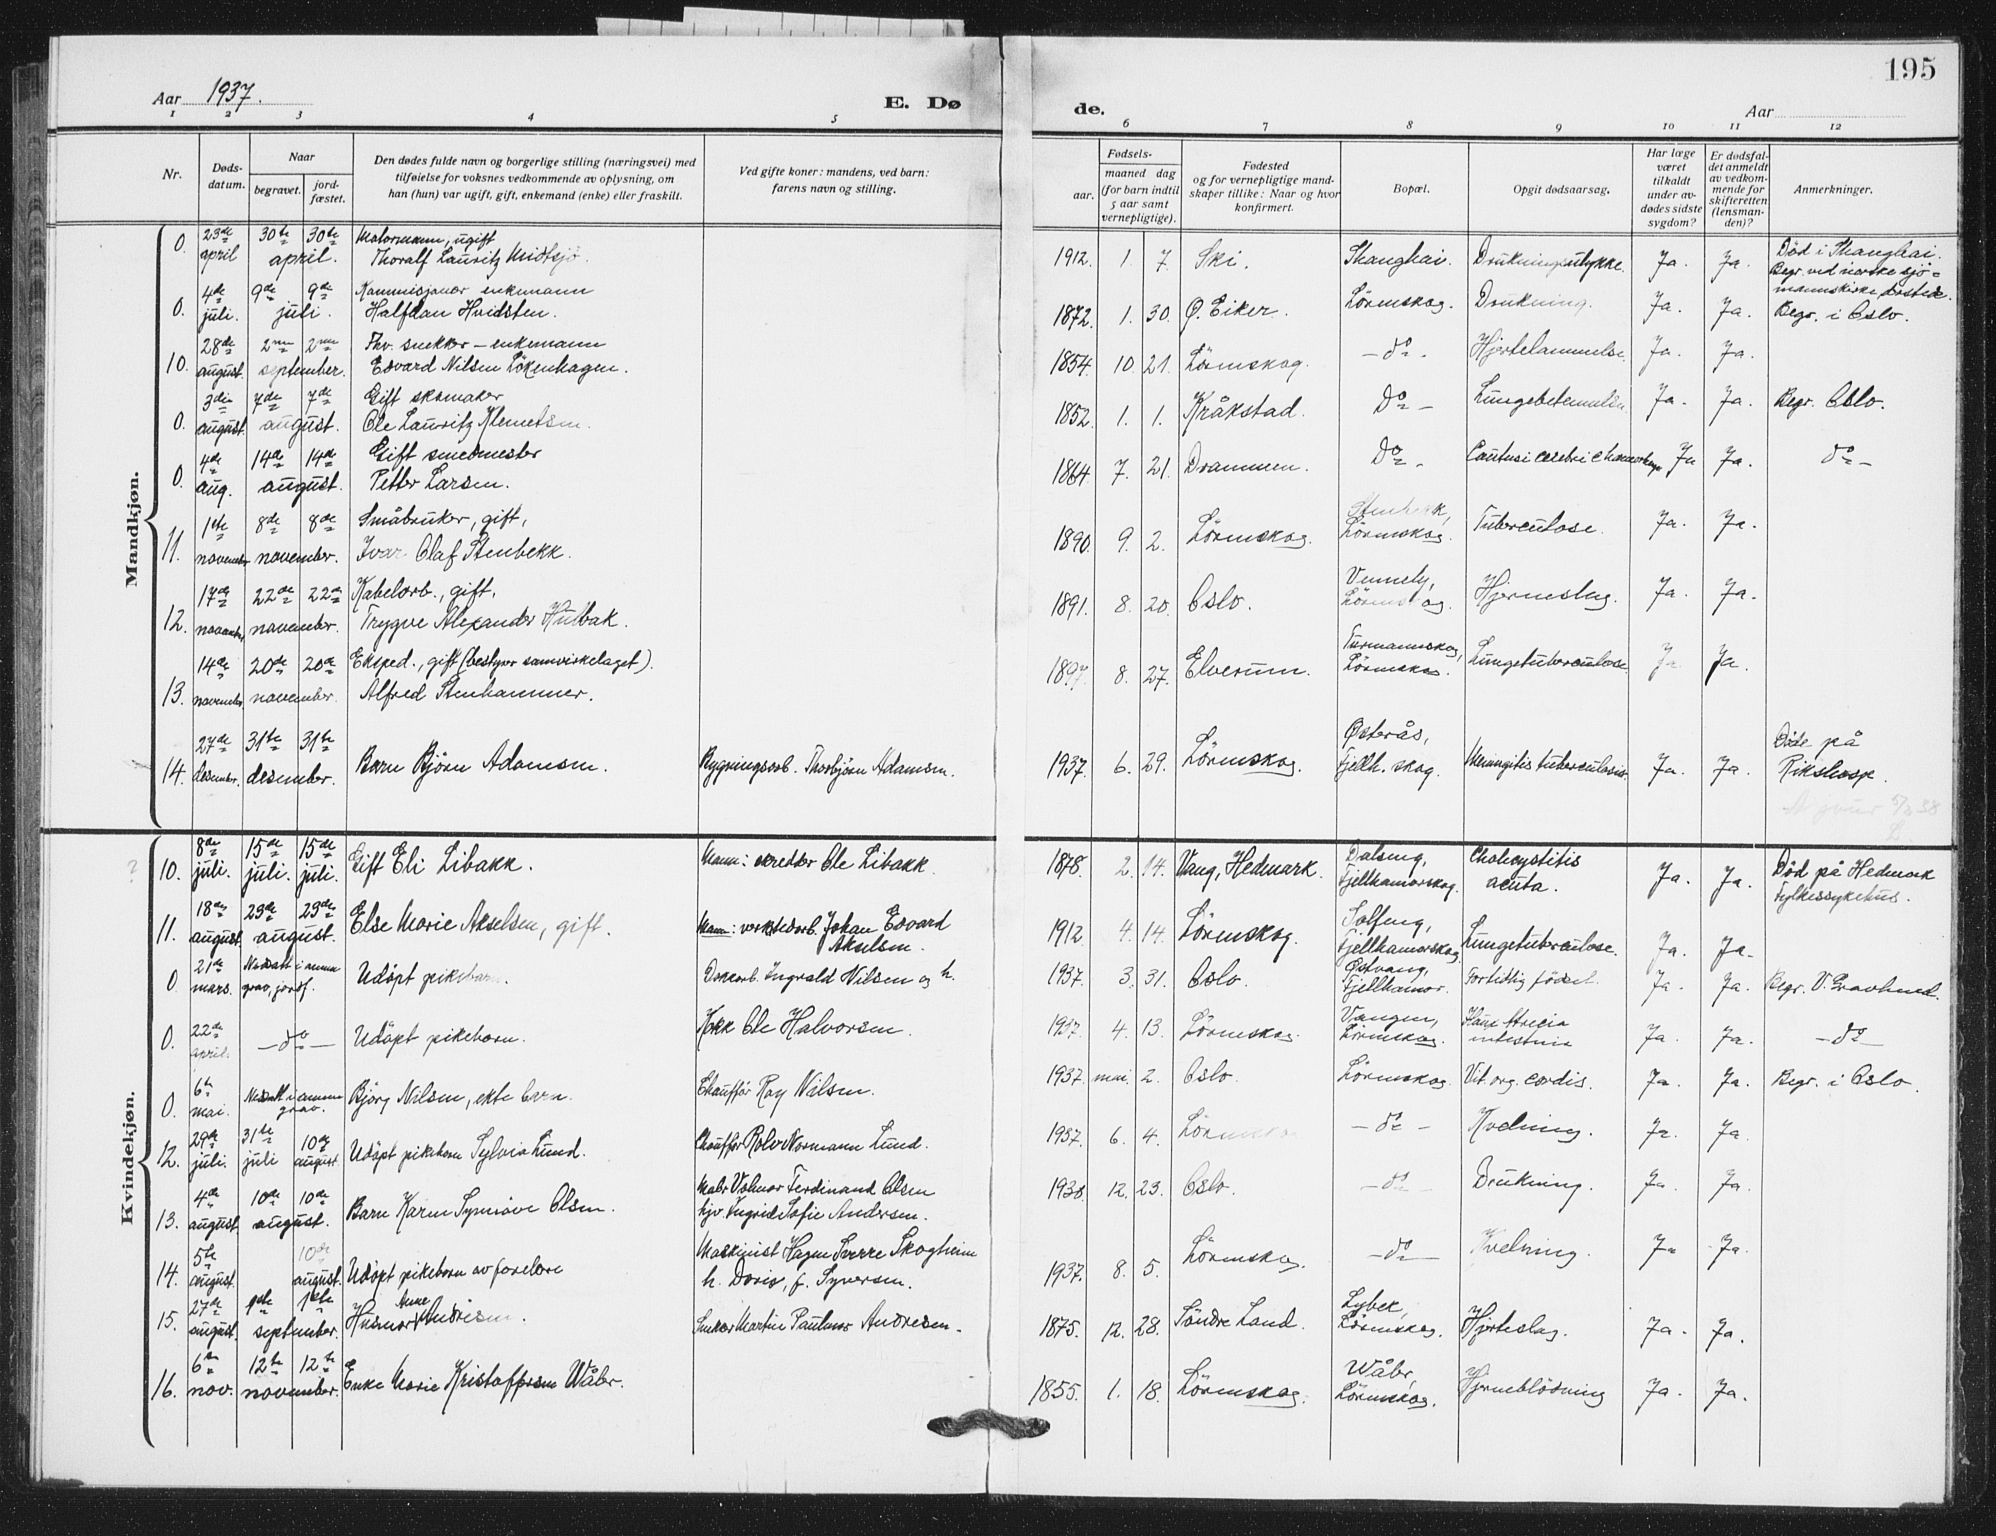 195
Aar 1937.
E. Dø
de.
Aar
1 2 3 4 5
6 7 8 9 10 11 12
Nr.
Døds-
datum.
Naar
begravet.
jord-
fæstet.
Den dødes fulde navn og borgerlige stilling (næringsvei) med
tilføielse for voksnes vedkommende av oplysning, om
han (hun) var ugift, gift, enkemand (enke) eller fraskilt.
Ved gifte koner: mandens, ved barn:
farens navn og stilling.
Fødsels-
aar. maaned dag
(for barn indtil
5 aar samt
vernepligtige).
Fødested
og for vernepligtige mand-
skaper tillike: Naar og hvor
konfirmert.
Bopæl.
Opgit dødsaarsag.
Har læge
været
tilkaldt
under av-
dødes sidste
sygdom?
Er dødsfal-
det anmeldt
av vedkom-
mende for
skifteretten
(lensman-
den)?
Anmerkninger.
Mandkjøn.
23de 30te 30te Motormann, ugift
0. april april. Thoralf Lauritz Midtsjø. 1912. 1. 7. Ski. Shanghai. Drukningsulykke. Ja. Ja. Død i Shanghai.
Begr. ved norske sjø-
mannskirke dersteds.
4de 9de 9de Kommisjonær enkemann
0. juli. juli. Halfdan Hvidsten. 1872. 1. 30. Ø. Eiker. Lörenskog. Drukning. Ja. Ja. Begr. i Oslo.
28de 2nen 2nen Fhv. snekker – enkemann
10. august. september. Edvard Nilsen Lökenhagen. 1854. 10. 21. Lörenskog. – do – Hjertelammelse. Ja. Ja.
3die 7de 7de Gift skomaker
0. august. august. Ole Lauritz Klemetsen. 1852. 1. 1. Kråkstad. Do – Lungebetennelse. Ja. Ja. Begr. Oslo.
4de 14de 14de Gift smedmester
0. aug. august. Petter Larsen. 1864. 7. 21. Drammen. Do – cerebri Ja Ja. do –
1ste 8de 8de Småbruker, gift,
11. november november. Ivar Olaf Stenbekk. 1890. 9. 2. Lörenskog. Stenbekk, Lörenskog. Tuberculose. Ja. Ja.
17de 22de 22de Kabelarb., gift,
12. november, november. Trygve Alexander Hulbak. 1891. 8. 20. Oslo. Vennely, Lörenskog. Hjerneslag. Ja. Ja.
14de 20de 20de Eksped., gift (bestyrer samvirkelaget).
13. november. november. Alfred Stenhammer. 1897. 8. 27. Elverum. Lörenskog. Lungetuberculose. Ja. Ja.
27de 31te 31te
14. desember. desember. Barn Björn Adamsen. Bygningsarb. Thorbjörn Adamsen. 1937. 6. 29. Lörenskog. Østerås, Fjellh. skog. Meningitis tuberculosis. Ja. Ja. Døde på
Rikshosp.
Kvindekjøn.
8de 15de 15de
10. juli. juli. juli. Gift Eli Libakk. Mann: skredder Ole Libakk. 1878. 2. 14. Vang, Hedmark. Daleng, Fjellhamarskog. Cholecystitis acuta. Ja. Ja. Død på Hedmark
Fylkessykehus.
18de 23de 23de
11. august. august. Else Marie Akselsen, gift. Mann: verkstedarb. Johan Edvard
Akselsen. 1912 4. 14. Lörenskog. Solfeng, Fjellhamarskog. Lungetuberculose. Ja. Ja.
21de Nedsatt i annen
0 mars. grav, jordf. Udöpt pikebarn. Ingvald Nilsen og h. 1937. 3. 31. Oslo. Østvang, Fjellhamar. Fortidlig födsel. Ja. Ja. Begr. V. Gravlund.
22de
0. april. – do – Udöpt pikebarn. Kokk Ole Halvorsen. 1937. 4. 13. Lörenskog. Vangen, Lörenskog. Ja. Ja. – do –
6te
0. mai. Nedsatt i annen grav. Björg Nilsen, ekte barn. Chauffør Roy Nilsen. 1937. mai. 2. Oslo. Lörenskog. Vit. org. cordis. Ja. Ja. Begr. i Oslo.
29de 31te 10de
12. juli. juli august. Udöpt pikebarn Sylvia Lund. Chauffør Rolv Normann Lund. 1937. 6. 4. Lörenskog – do – Kvelning. Ja. Ja.
4de 10de 10de
13. august august. Barn Karen Synnöve Olsen. Malr Valmar Ferdinand Olsen
hjv. Ingrid Sofie Andersen. 1930. 12. 23. Oslo. – do – Drukning. Ja. Ja.
5te 10de
14. august. august. Udöpt pikebarn av foreldre Maskinist Hagen Sverre Skogheim
h. Doris, f. Syversen. 1937. 8. 5. Lörenskog. – do – Kvelning. Ja Ja.
27de 1ste 1ste
15. august. september. Husmor Anne Andresen. Snekker Martin Paulinus Andresen. 1875. 12. 28. Söndre Land. Lybek, Lörenskog. Hjerteslag. Ja. Ja.
6te 12te 12te
16. nov. november. Enke Marie Kristoffersen Wåler. 1855. 1. 18. Lörenskog. Wåler, Lörenskog. Hjerneblödning Ja. Ja.